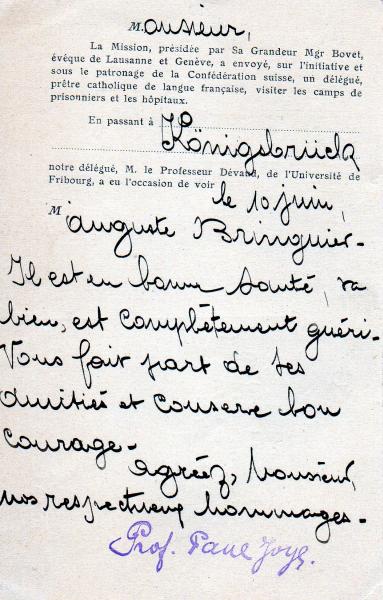 Monsieur,
La Mission, présidée par Sa Grandeur Mgr Bovet,
évêque de Lausanne et Genève, a envoyé, sur l'initiative et
sous le patronage de la Confédération suisse, un délégué,
prêtre catholique de langue française, visiter les camps de
prisonniers et les hôpitaux.
En passant à
Königsbrück
notre délégué, M. le Professeur Dévaud, de l'Université de
Fribourg, a eu l'occasion de voir
le 10 juin,
M
auguste Bringuier-
Il est en bonne santé, va
bien, est complètement guéri.
Vous fait part de ses
amitiés et conserve bon
courage-
agréez, Monsieur,
nos respectueux hommages-
Prof. Paul Joye.